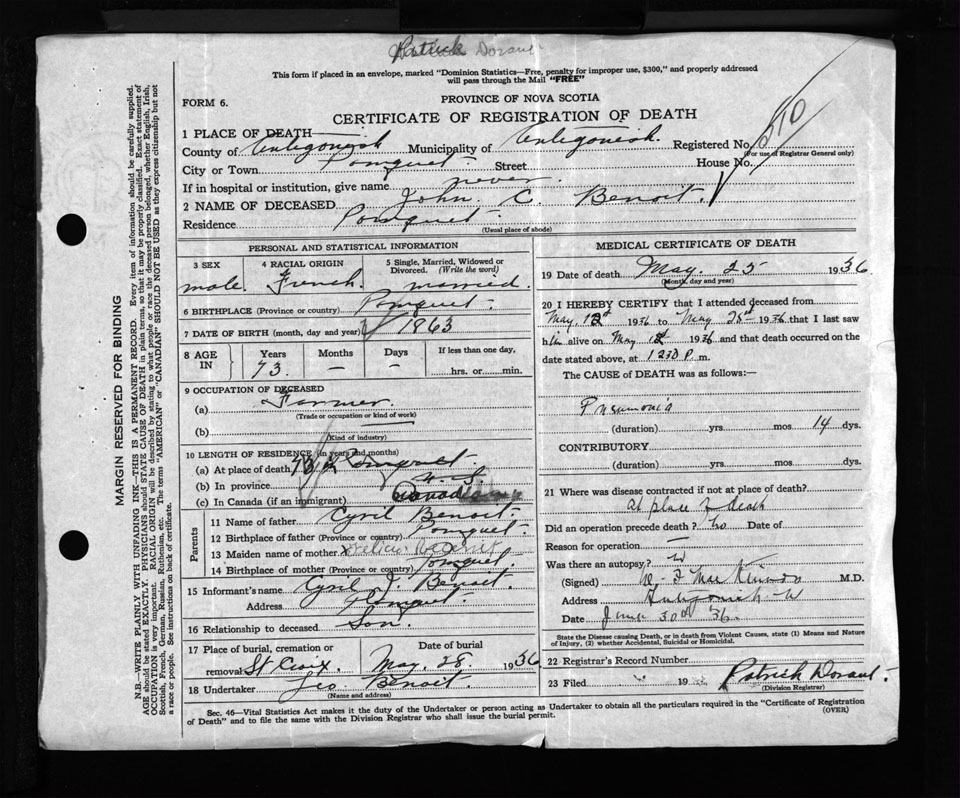 Patrick Dorant
This form if placed in an envelope, marked "Dominion Statistics—Free, penalty for improper use, $300," and properly addressed
will pass through the Mail "FREE"
FORM 6.
PROVINCE OF NOVA SCOTIA
CERTIFICATE OF REGISTRATION OF DEATH
1 PLACE OF DEATH
County of Antigonish Municipality of Antigonish. Registered No.
(For use of Registrar General only)
City or Town Pomquet Street House No.
If in hospital or institution, give name never.
2 NAME OF DECEASED John C. Benoit.
Residence Pomquet.
(Usual place of abode)
PERSONAL AND STATISTICAL INFORMATION
3 SEX 4 RACIAL ORIGIN 5 Single, Married, Widowed or
Divorced. (Write the word)
male French. married.
6 BIRTHPLACE (Province or country) Pomquet.
7 DATE OF BIRTH (month, day and year) 1863
8 AGE IN Years Months Days If less than one day,
73. — — hrs. or min.
9 OCCUPATION OF DECEASED
(a) Farmer.
(Trade or occupation or kind of work)
(b)
(Kind of industry)
10 LENGTH OF RESIDENCE (in years and months)
(a) At place of death 73 Pomquet
(b) In province N.S.
(c) In Canada (if an immigrant) Canadian
Parents
11 Name of father Cyril Benoit.
12 Birthplace of father (Province or country) Pomquet.
13 Maiden name of mother
14 Birthplace of mother (Province or country) Pomquet.
15 Informant's name Cyril J. Benoit.
Address Pomquet.
16 Relationship to deceased Son.
17 Place of burial, cremation or
removal St Croix. May. 28 1936
18 Undertaker Geo. Benoit.
(Name and address)
MEDICAL CERTIFICATE OF DEATH
19 Date of death May. 25 1936
(Month, day and year)
20 I HEREBY CERTIFY that I attended deceased from
May, 1936 to May 25th 1936 that I last saw
him alive on May 1936 and that death occurred on the
date stated above, at 1230 P. m.
The CAUSE of DEATH was as follows:—
Pneumonia
(duration) yrs. mos. 14 dys.
CONTRIBUTORY
(duration) yrs. mos. dys.
21 Where was disease contracted if not at place of death?
At place of death
Did an operation precede death? no Date of
Reason for operation —
Was there an autopsy? no
(Signed) M.D.
Address Antigonish
Date June 30th 36.
State the Disease causing Death, or in death from Violent Causes, state (1) Means and Nature
of Injury, (2) whether Accidental, Suicidal or Homicidal.
22 Registrar's Record Number
23 Filed 19 Patrick Dorant.
(Division Registrar)
Sec. 46—Vital Statistics Act makes it the duty of the Undertaker or person acting as Undertaker to obtain all the particulars required in the "Certificate of Registration
of Death" and to file the same with the Division Registrar who shall issue the burial permit. (OVER)
MARGIN RESERVED FOR BINDING
N.B.—WRITE PLAINLY WITH UNFADING INK—THIS IS A PERMANENT RECORD. Every item of information should be carefully supplied.
AGE should be stated EXACTLY. PHYSICIANS should STATE CAUSE OF DEATH in plain terms, so that it may be properly classified. Exact statement of
OCCUPATION is very important. RACIAL ORIGIN will be described by stating to what people or race the deceased person belonged, whether English, Irish,
Scottish, French, German, Russian, Ruthenian, etc. The terms "AMERICAN" or "CANADIAN" SHOULD NOT BE USED as they express citizenship but not
a race or people. See instructions on back of certificate.